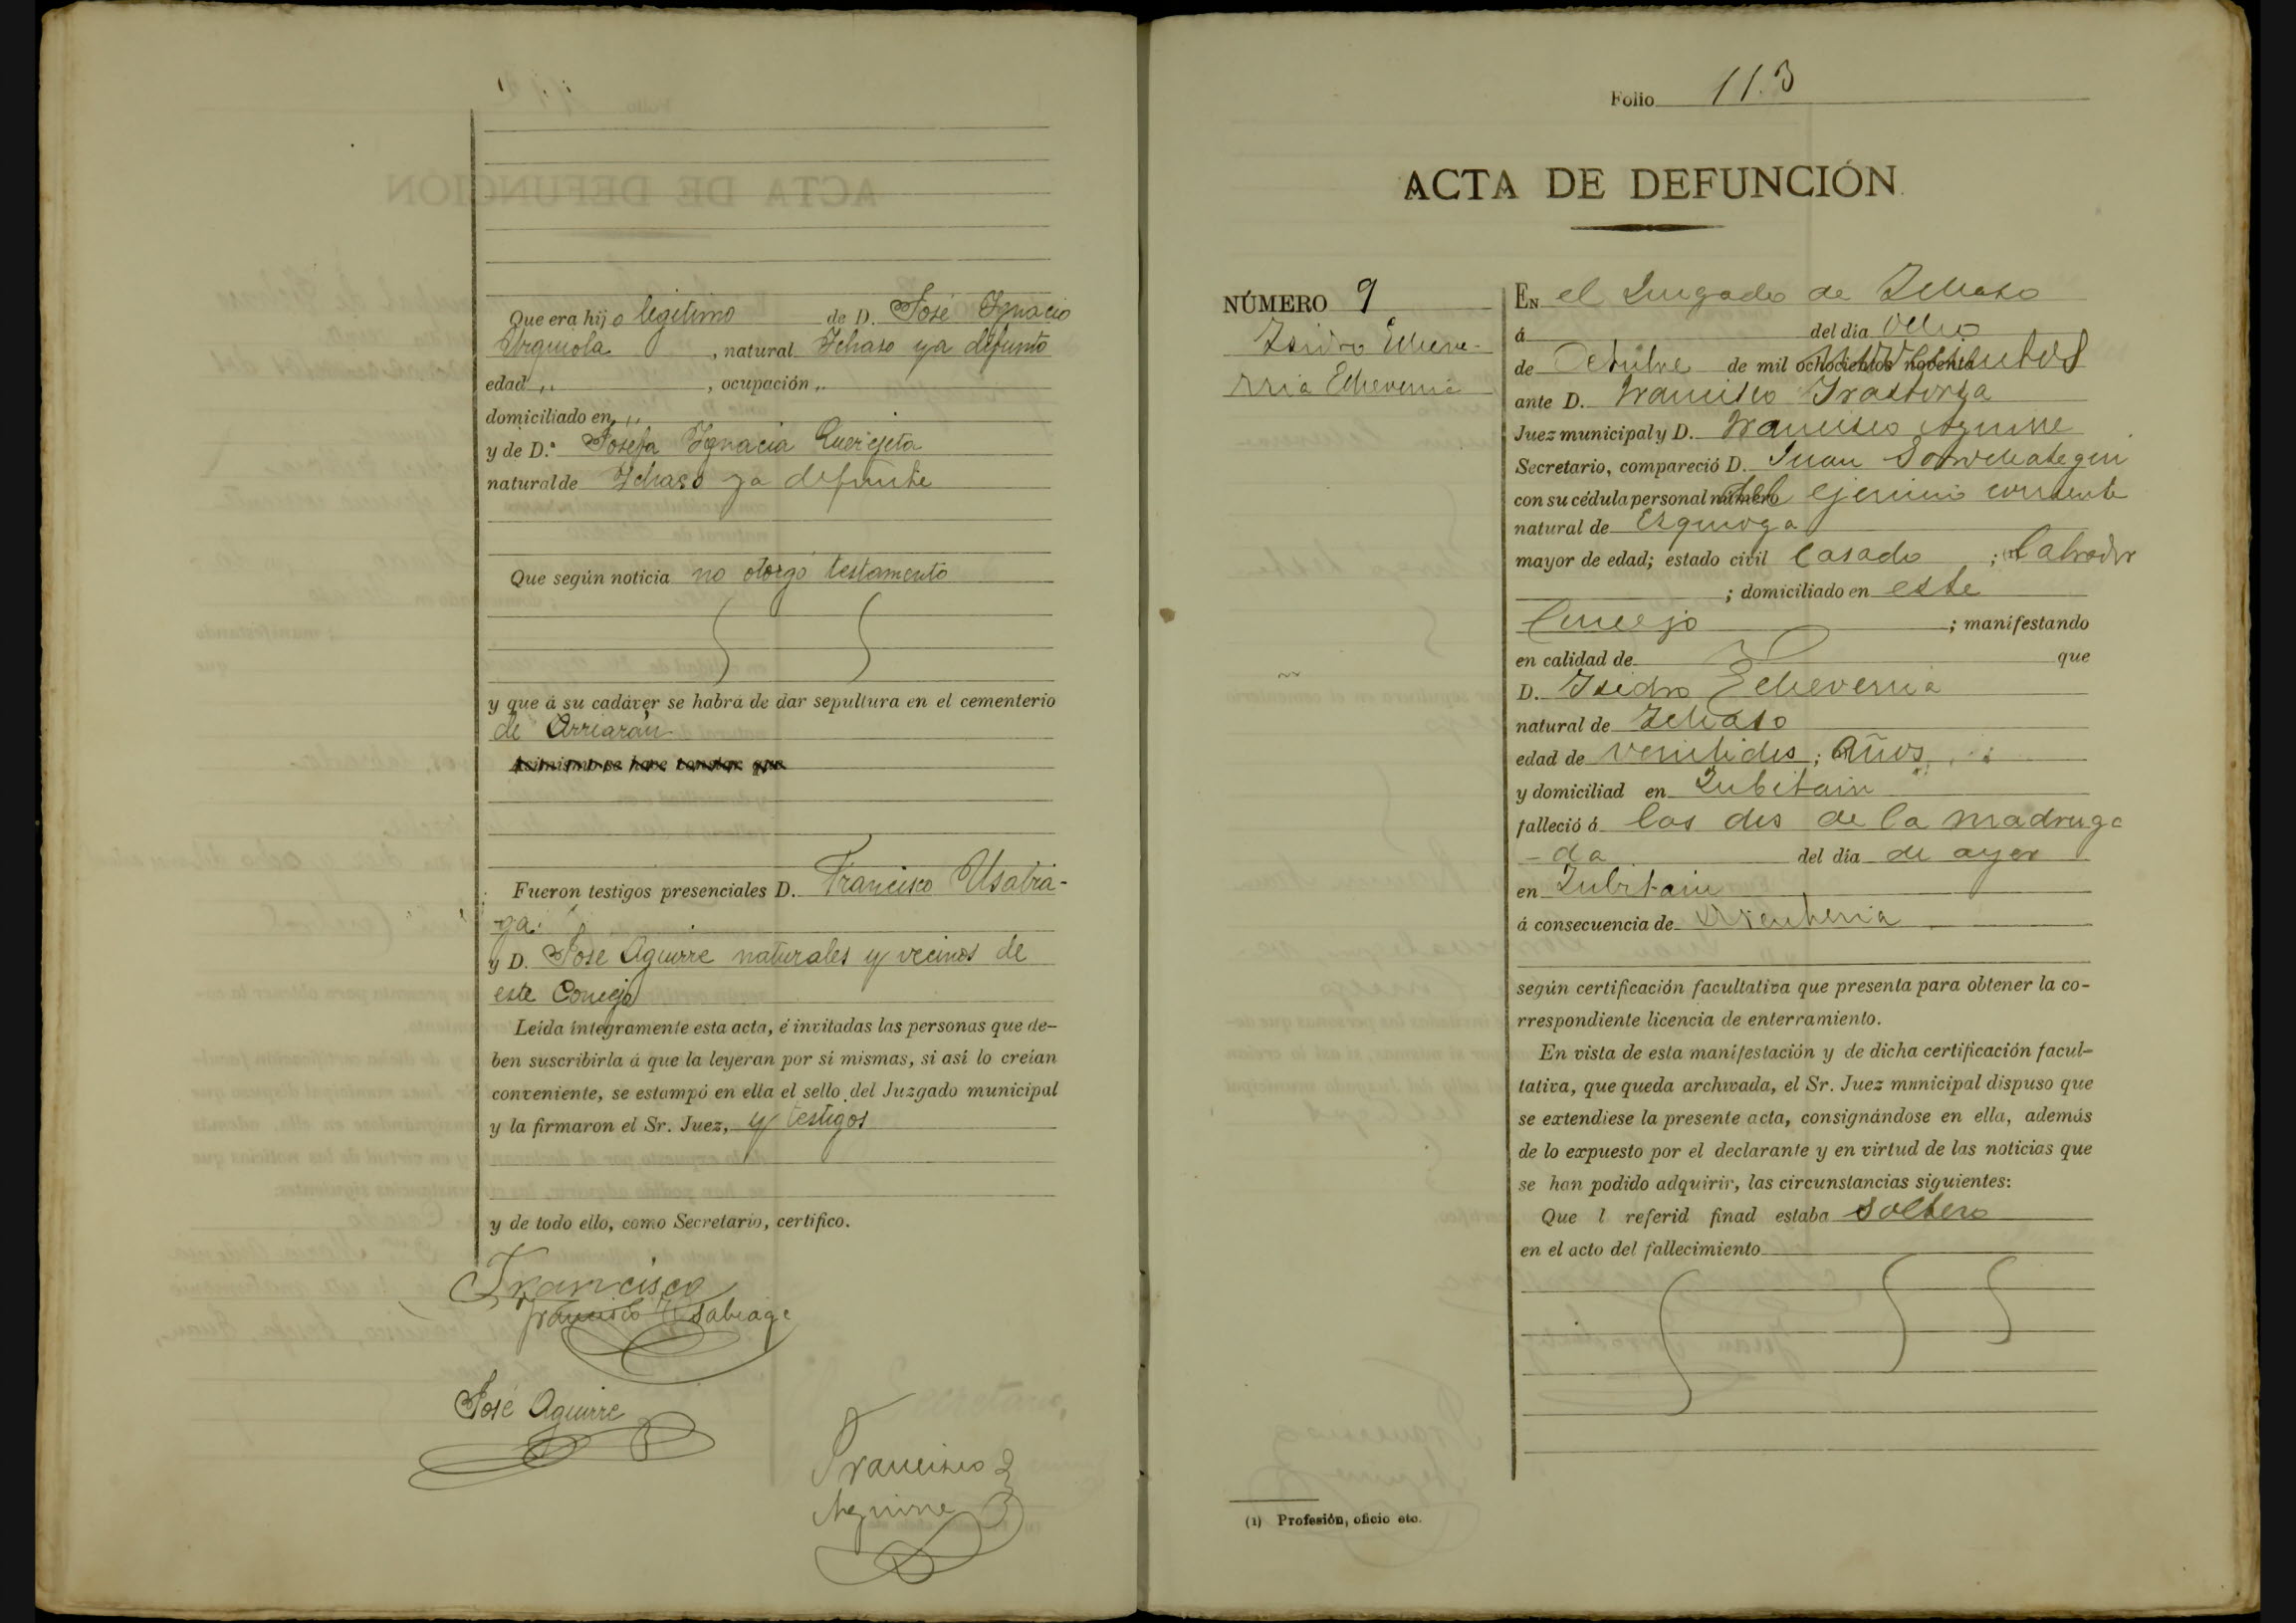 Que era hijo legitimo de D. José Ignacio
Urquiola, natural Ichaso ya difunto
edad ,, , ocupación ,,
domiciliado en ,,
y de D.ª Josefa Ignacia Querejeta
natural de Ichaso ya defunta
Que según noticia no otorgó testamento
y que á su cadáver se habrá de dar sepultura en el cementerio
de Arriarán
Asimismo se hace constar que
Fueron testigos presenciales D. Francisco Usabia-
ga.
y D. José Aguirre naturales y vecinos de
este Concejo
Leída íntegramente esta acta, é invitadas las personas que de-
ben suscribirla á que la leyeran por sí mismas, si así lo creían
conveniente, se estampó en ella el sello del Juzgado municipal
y la firmaron el Sr. Juez, y testigos
y de todo ello, como Secretario, certifico.
Francisco
Francisco Usabiaga
José Aguirre
Francisco
Aguirre
Folio 113
ACTA DE DEFUNCIÓN
NÚMERO 9
Isidro Echeve-
rria Echeverria
EN el Juzgado de Ichaso
á del día ocho
de Octubre de mil ochocientos noventa novecientos
ante D. Francisco Irastorza
Juez municipal y D. Francisco Aguirre
Secretario, compareció D. Juan
con su cédula personal número del ejercicio corriente
natural de Ezquioga
mayor de edad; estado civil Casado ; (1) Labrador
; domiciliado en este
Concejo ; manifestando
en calidad de que
D. Isidro Echeverria
natural de Ichaso
edad de ventidos ; años
y domiciliad en Zubitain
falleció á las dos de la madruga
-da del día de ayer
en Zubitain
á consecuencia de
según certificación facultativa que presenta para obtener la co-
rrespondiente licencia de enterramiento.
En vista de esta manifestación y de dicha certificación facul-
tativa, que queda archivada, el Sr. Juez municipal dispuso que
se extendiese la presente acta, consignándose en ella, además
de lo expuesto por el declarante y en virtud de las noticias que
se han podido adquirir, las circunstancias siguientes:
Que l referid finad estaba Soltero
en el acto del fallecimiento
(1) Profesión, oficio etc.